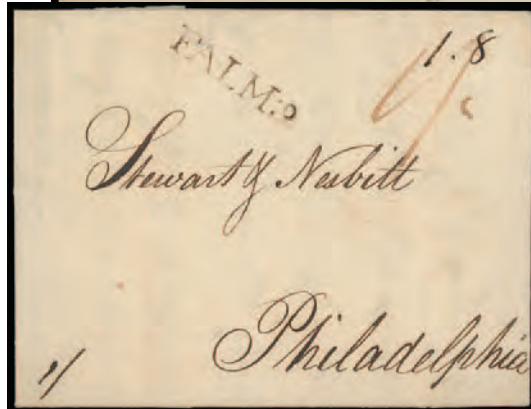 FALMº
1.8
Stewart & Nesbitt
Philadelphia
1/